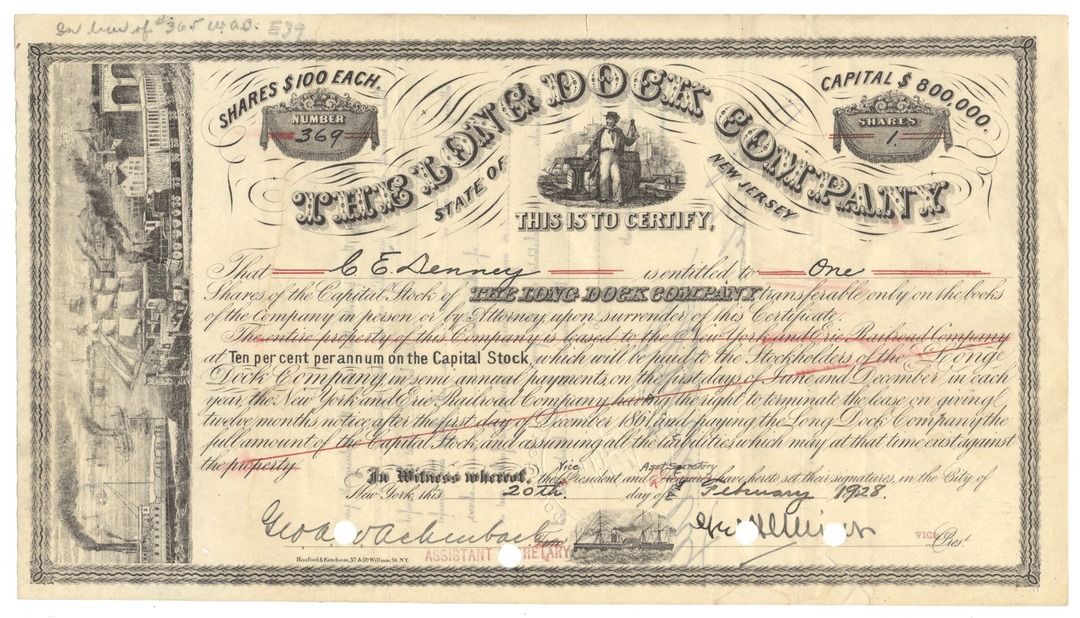 In lieu of # 365 E39
SHARES $100 EACH.
CAPITAL $ 800,000.
NUMBER
369
SHARES
1.
THE LONG DOCK COMPANY
STATE OF NEW JERSEY
THIS IS TO CERTIFY,
That C E. Denney is entitled to One
Shares of the Capital Stock of THE LONG DOCK COMPANY transferable only on the books
of the Company in person or by Attorney upon surrender of this Certificate.
The entire property of this Company is leased to the New York and Erie Railroad Company
at Ten per cent per annum on the Capital Stock, which will be paid to the Stockholders of the Long
Dock Company in semi-annual payments, on the first days of June and December, in each
year, the New York and Erie Railroad Company having the right to terminate the lease on giving
twelve months notice, after the first day of December 1861, and paying the Long Dock Company the
full amount of the Capital Stock, and assuming all the liabilities, which may at that time exist against
the property.
Vice Asst Secretary
In Witness whereof, the President and Treasurer have hereto set their signatures, in the City of
New York, this 20th day of February 1928.
Geo
ASSISTANT SECRETARY
VICE Prest.
Hosford & Ketcham, 57 & 59 William, St. N.Y.